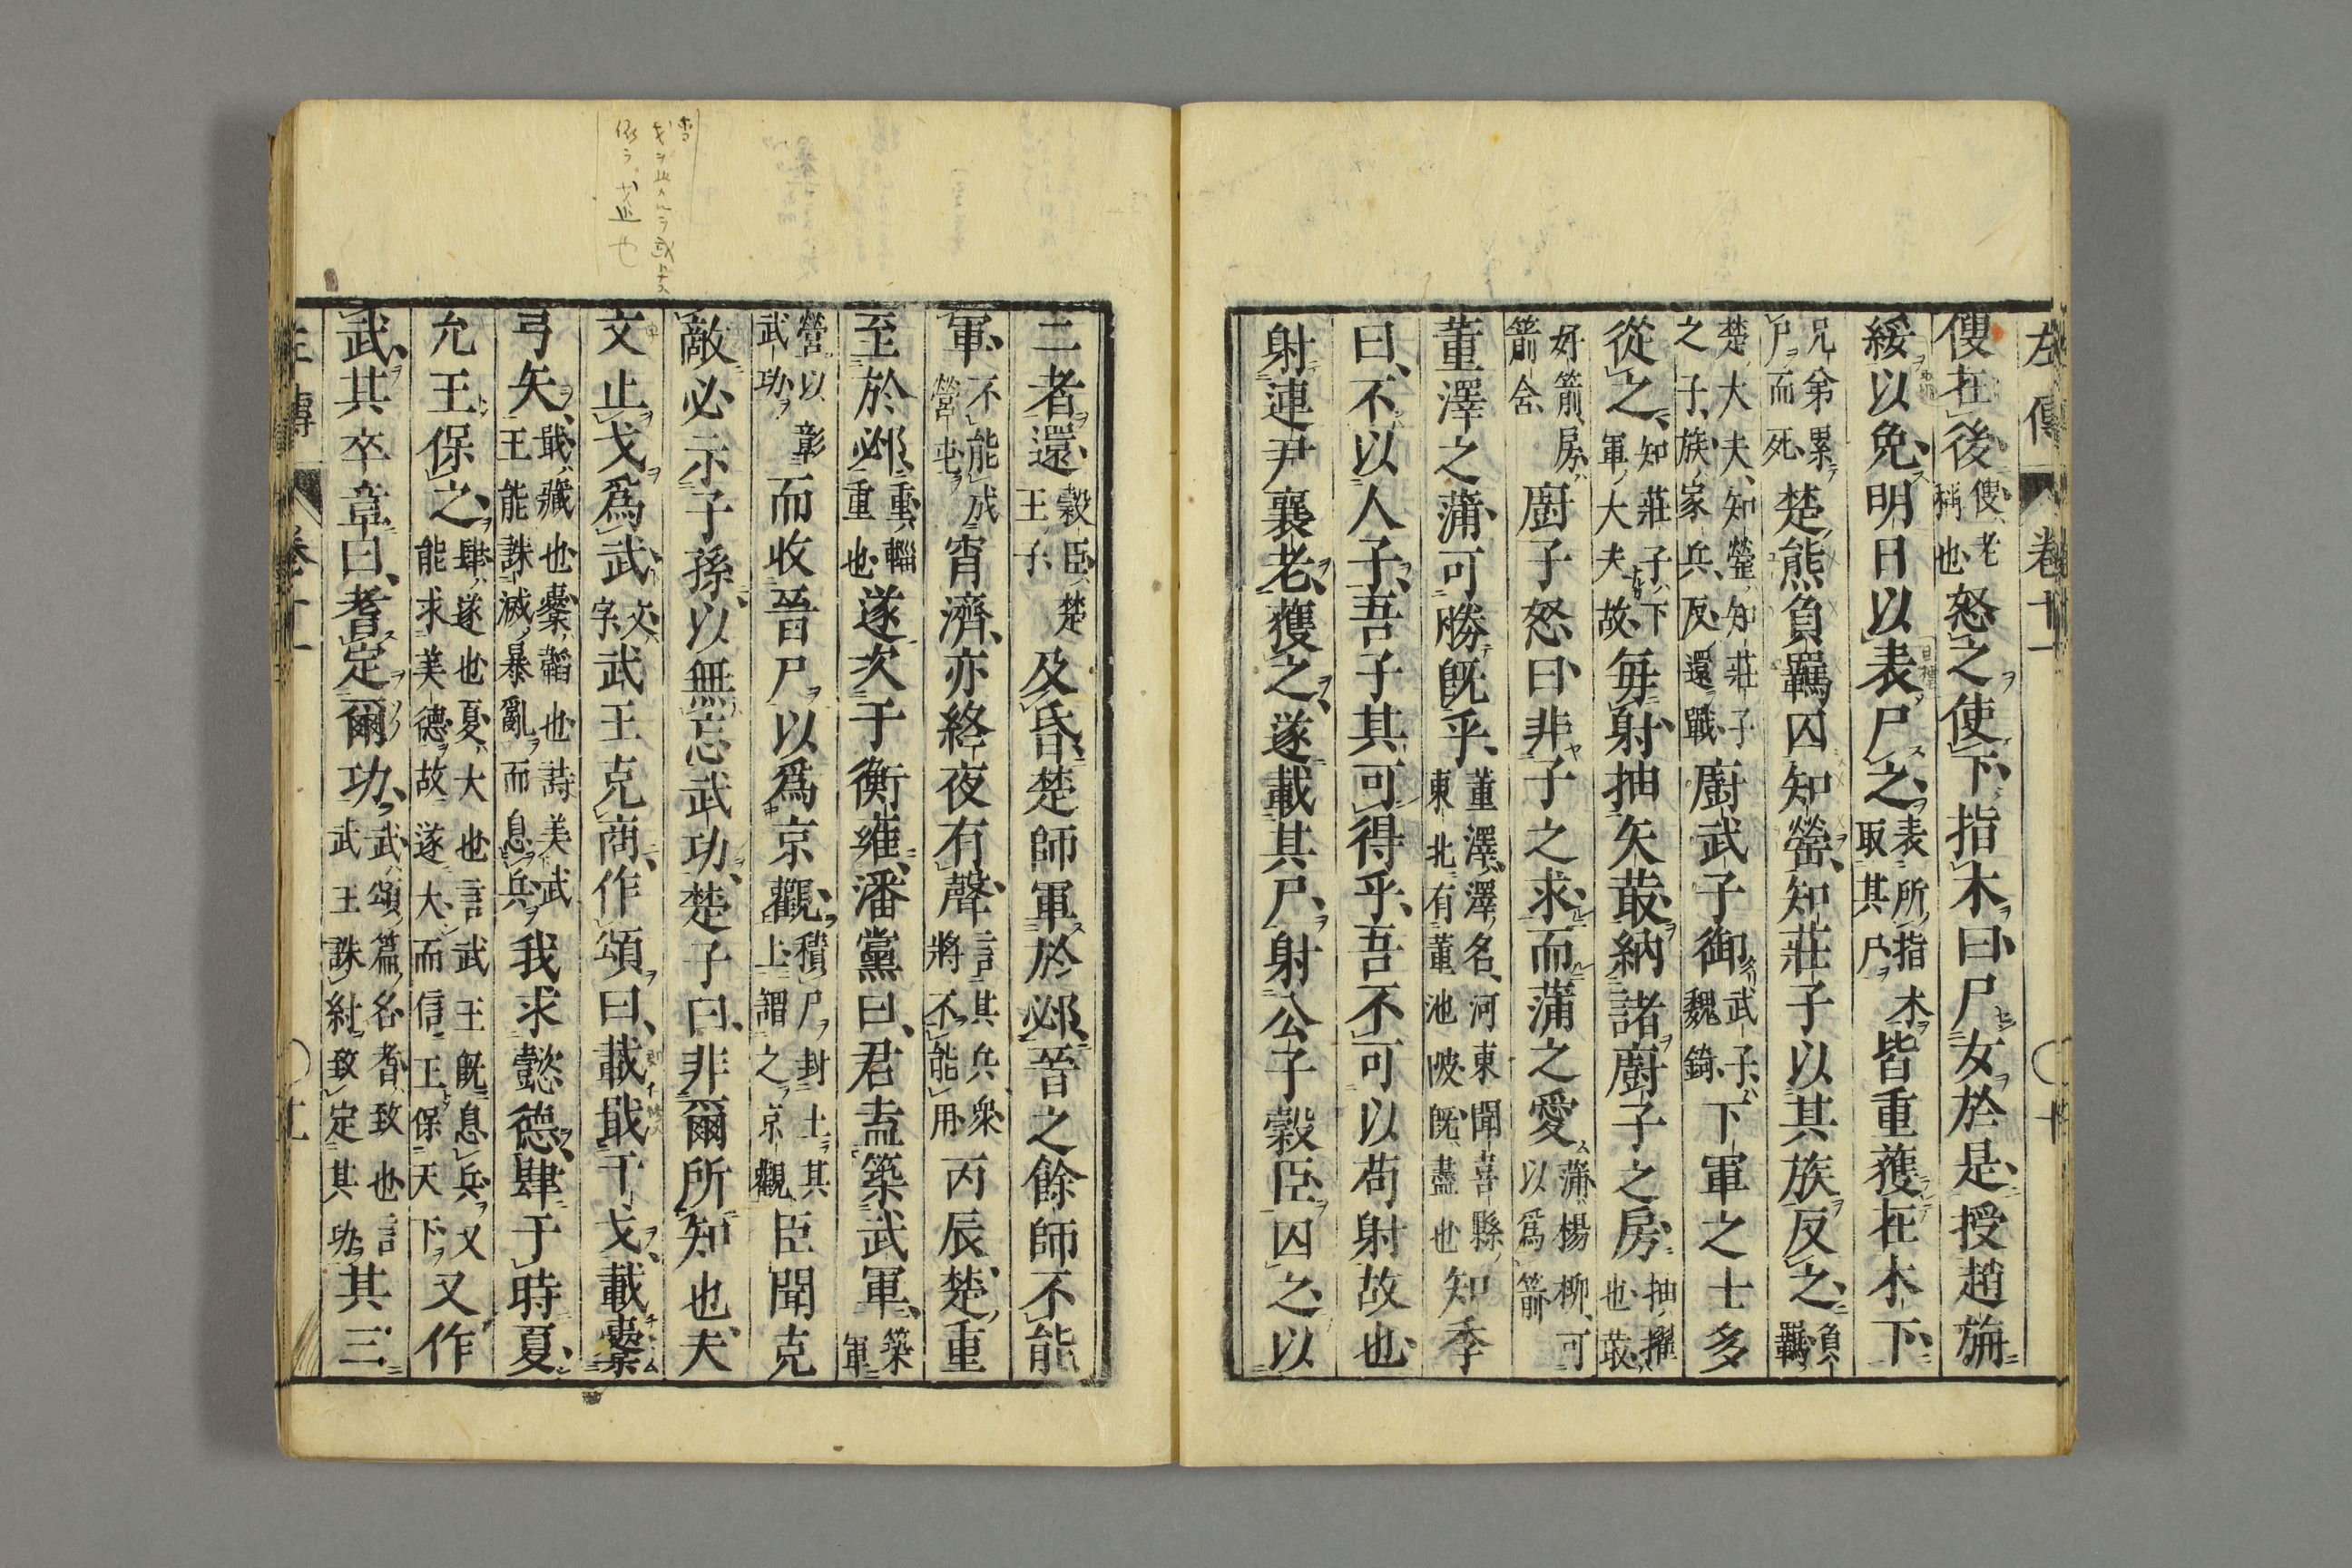 左傳 卷十一 十
傁在後傁老稱也怒之使下指木曰尸女於是授趙旃
綏以免明日以表尸之表所指木取其尸皆重獲在木下
兄弟累尸而死楚熊負羈囚知罃知莊子以其族反之負羈
楚大夫知罃知莊子之子族家兵反還戰廚武子御武子魏錡下軍之士多
從之知莊子下軍大夫故每射抽矢菆納諸廚子之房抽擢也菆
好箭房箭舍廚子怒曰非子之求而蒲之愛蒲楊柳可以爲箭
董澤之蒲可勝旣乎董澤澤名河東聞喜縣東北有董池陂旣盡也知季
曰不以人子吾子其可得乎吾不可以苟射故也
射連尹襄老獲之遂載其尸射公子穀臣囚之以
二者還穀臣楚王子及昏楚師軍於邲晉之餘師不能
軍不能成營屯宵濟亦終夜有聲言其兵衆將不能用丙辰楚重
至於邲重輜重也遂次于衡雍潘黨曰君盍築武軍築軍
營以彰武功而收晉尸以爲京觀積尸封土其上謂之京觀臣聞克
敵必示子孫以無忘武功楚子曰非爾所知也夫
文止戈爲武文字武王克商作頌曰載戢干戈載櫜
弓矢戢藏也櫜韜也詩美武王能誅滅暴亂而息兵我求懿德肆于時夏
允王保之肆遂也夏大也言武王旣息兵又能求美德故遂大而信王保天下又作
武其卒章曰耆定爾功武頌篇名耆致也言武王誅紂致定其功其三
左傳 卷十一